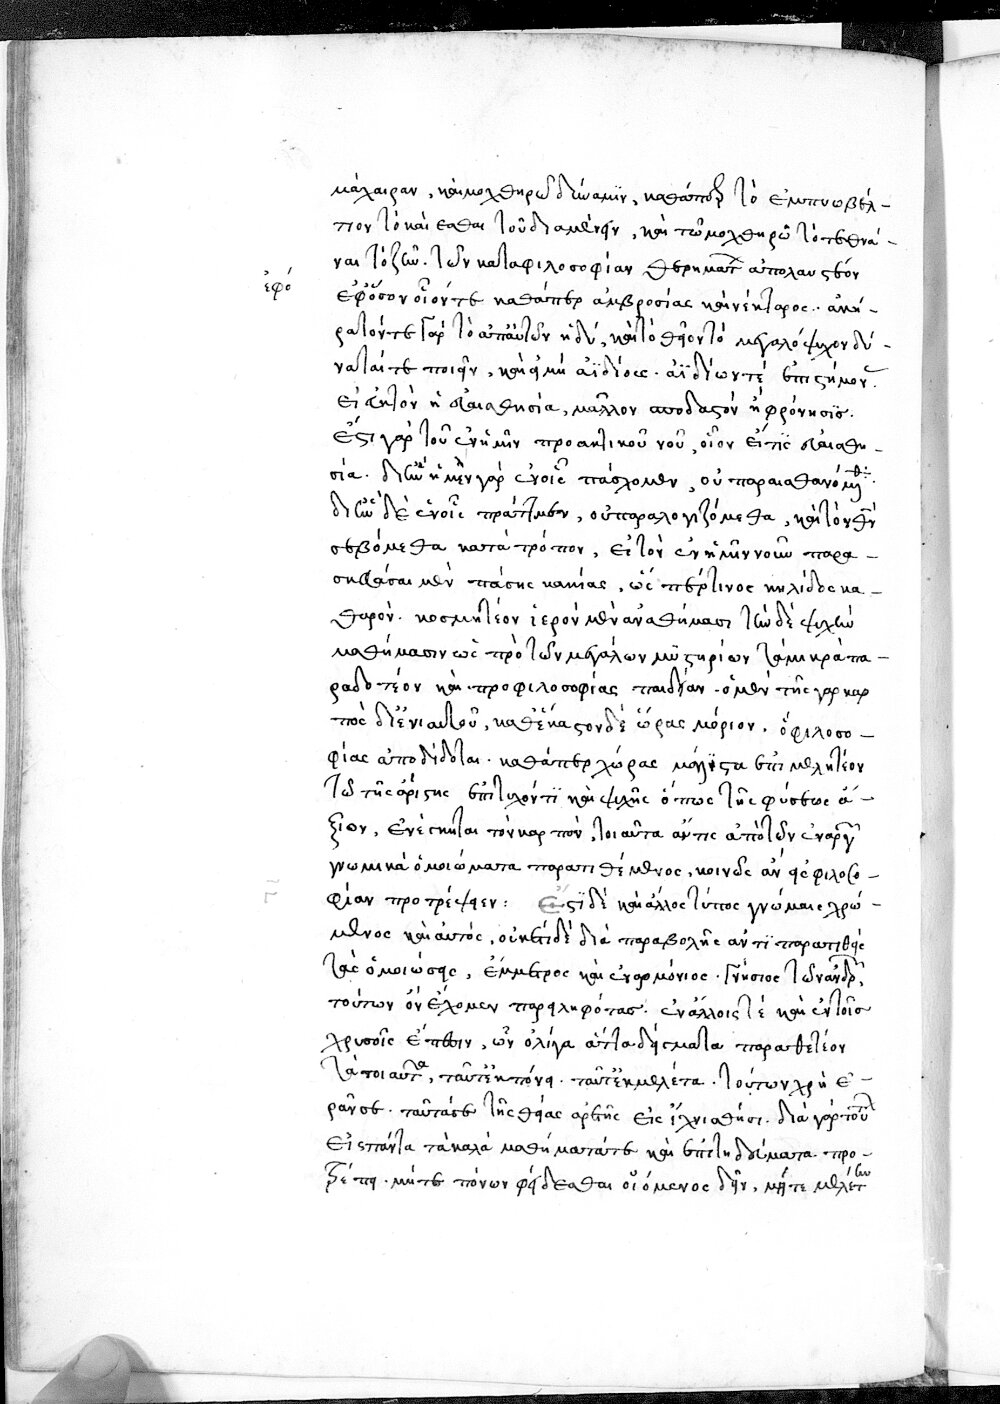 μάχαιραν, καὶ μοχθηρῶ δύναμιν, καθάπερ τὸ ἐμπνω βέλ-
τιον τὸ καίεσθαι τοῦ διαμένειν, καὶ τῶ μοχθηρῶ τὸ τεθνά-
ναι τὸ ζῶ. τῶν κατα φιλοσοφίαν θεωρημάτων ἀπολαυστέον
ἐφό
ἐφόσον οἷόντε καθάπερ ἀμβροσίας καὶ νέκταρος. ἀκή-
ρατόν τε γὰρ τὸ ἀπ' αὐτῶν ἡδύ, καὶ τὸ θεῖον τὸ μεγαλόψυχον δύ-
ναταί τε ποιεῖν, καὶ εἰ μὴ ἀϊδίους. ἀϊδίων τέ ἐπιστήμονας.
εἰ εὐκτὸν ἡ εὐαισθησία, μᾶλλον σπουδαστόν ἡ φρόνησις.
ἔστι γὰρ τοῦ ἐν ἡμῖν πρακτικοῦ νοῦ, οἷον εἴ τις εὐαισθη-
σία. δι' ὧν ἡ μὲν γὰρ ἐν οἷς πάσχομεν, οὐ παραισθανόμεθα.
δι' ὧν δὲ ἐν οἷς πράττομεν, οὐ παραλογιζόμεθα, καὶ τὸν θεὸν
σεβόμεθα κατὰ τρόπον, εἰ τὸν ἐν ἡμῖν νοῦν παρα-
σκευάσαιμεν πάσης κακίας, ὥσπερ τινος κηλίδος κα-
θαρόν. κοσμητέον ἱερὸν μὲν ἀναθήμασι τὴν δὲ ψυχὴν
μαθήμασιν ὡς πρὸ τῶν μεγάλων μυστηρίων τὰ μικρὰ πα-
ραδοτέον καὶ προ φιλοσοφίας παιδείαν. ὁ μὲν τῆς γὰρ καρ
πὸς δι' ἐνιαυτοῦ, καθ' ἕκαστον δὲ ὥρας μόριον. ὁ φιλοσο-
φίας ἀποδίδοται. καθάπερ χώρας μάλιστα ἐπιμελητέον
τῶ τῆς ἀρίστης ἐπιτυχόντι καὶ ψυχῆς ὅπως τῆς φύσεως ἄ-
ξιον, ἐνέγκηται τὸν καρπόν, τοιαῦτα ἄν τις ἀπὸ τῶν ἐναργῶν
γνωμικὰ ὁμοιώματα παρατιθέμενος, κοινῶς ἂν εἰς φιλοσο-
φίαν προτρέψειεν: Ἔστι δὲ καὶ ἄλλος τύπος γνώμαις χρώ-
μενος καὶ αὐτός, οὐκέτι δὲ διὰ παραβολῆς ἀντιπαρατιθεὶς
τὰς ὁμοιώσεις, ἔμμετρος καὶ ἐναρμόνιος. γνήσιος τῶν ἀνδρῶν
τούτων ὃν ἔχομεν παρειληφότας. ἐν ἄλλοις τέ καὶ ἐν τοῖς
χρυσοῖς ἔπεσιν, ὧν ὀλίγα ἄττα δείγματα παραθετέον
τὰ τοιαῦτα, ταῦτ' ἐκπόνει. ταῦτ' ἐκμελέτα. τούτων χρὴ ἐ-
ρᾶν σε. ταῦτά σε τῆς θείας ἀρετῆς εἰς ἴχνια θήσει. διὰ γὰρ τούτων
εἰς πάντα τὰ καλὰ μαθήματά τε καὶ ἐπιτηδεύματα προ-
τρέπει. μήτε πόνων φείδεσθαι οἰόμενος δεῖν, μήτε μελέτην